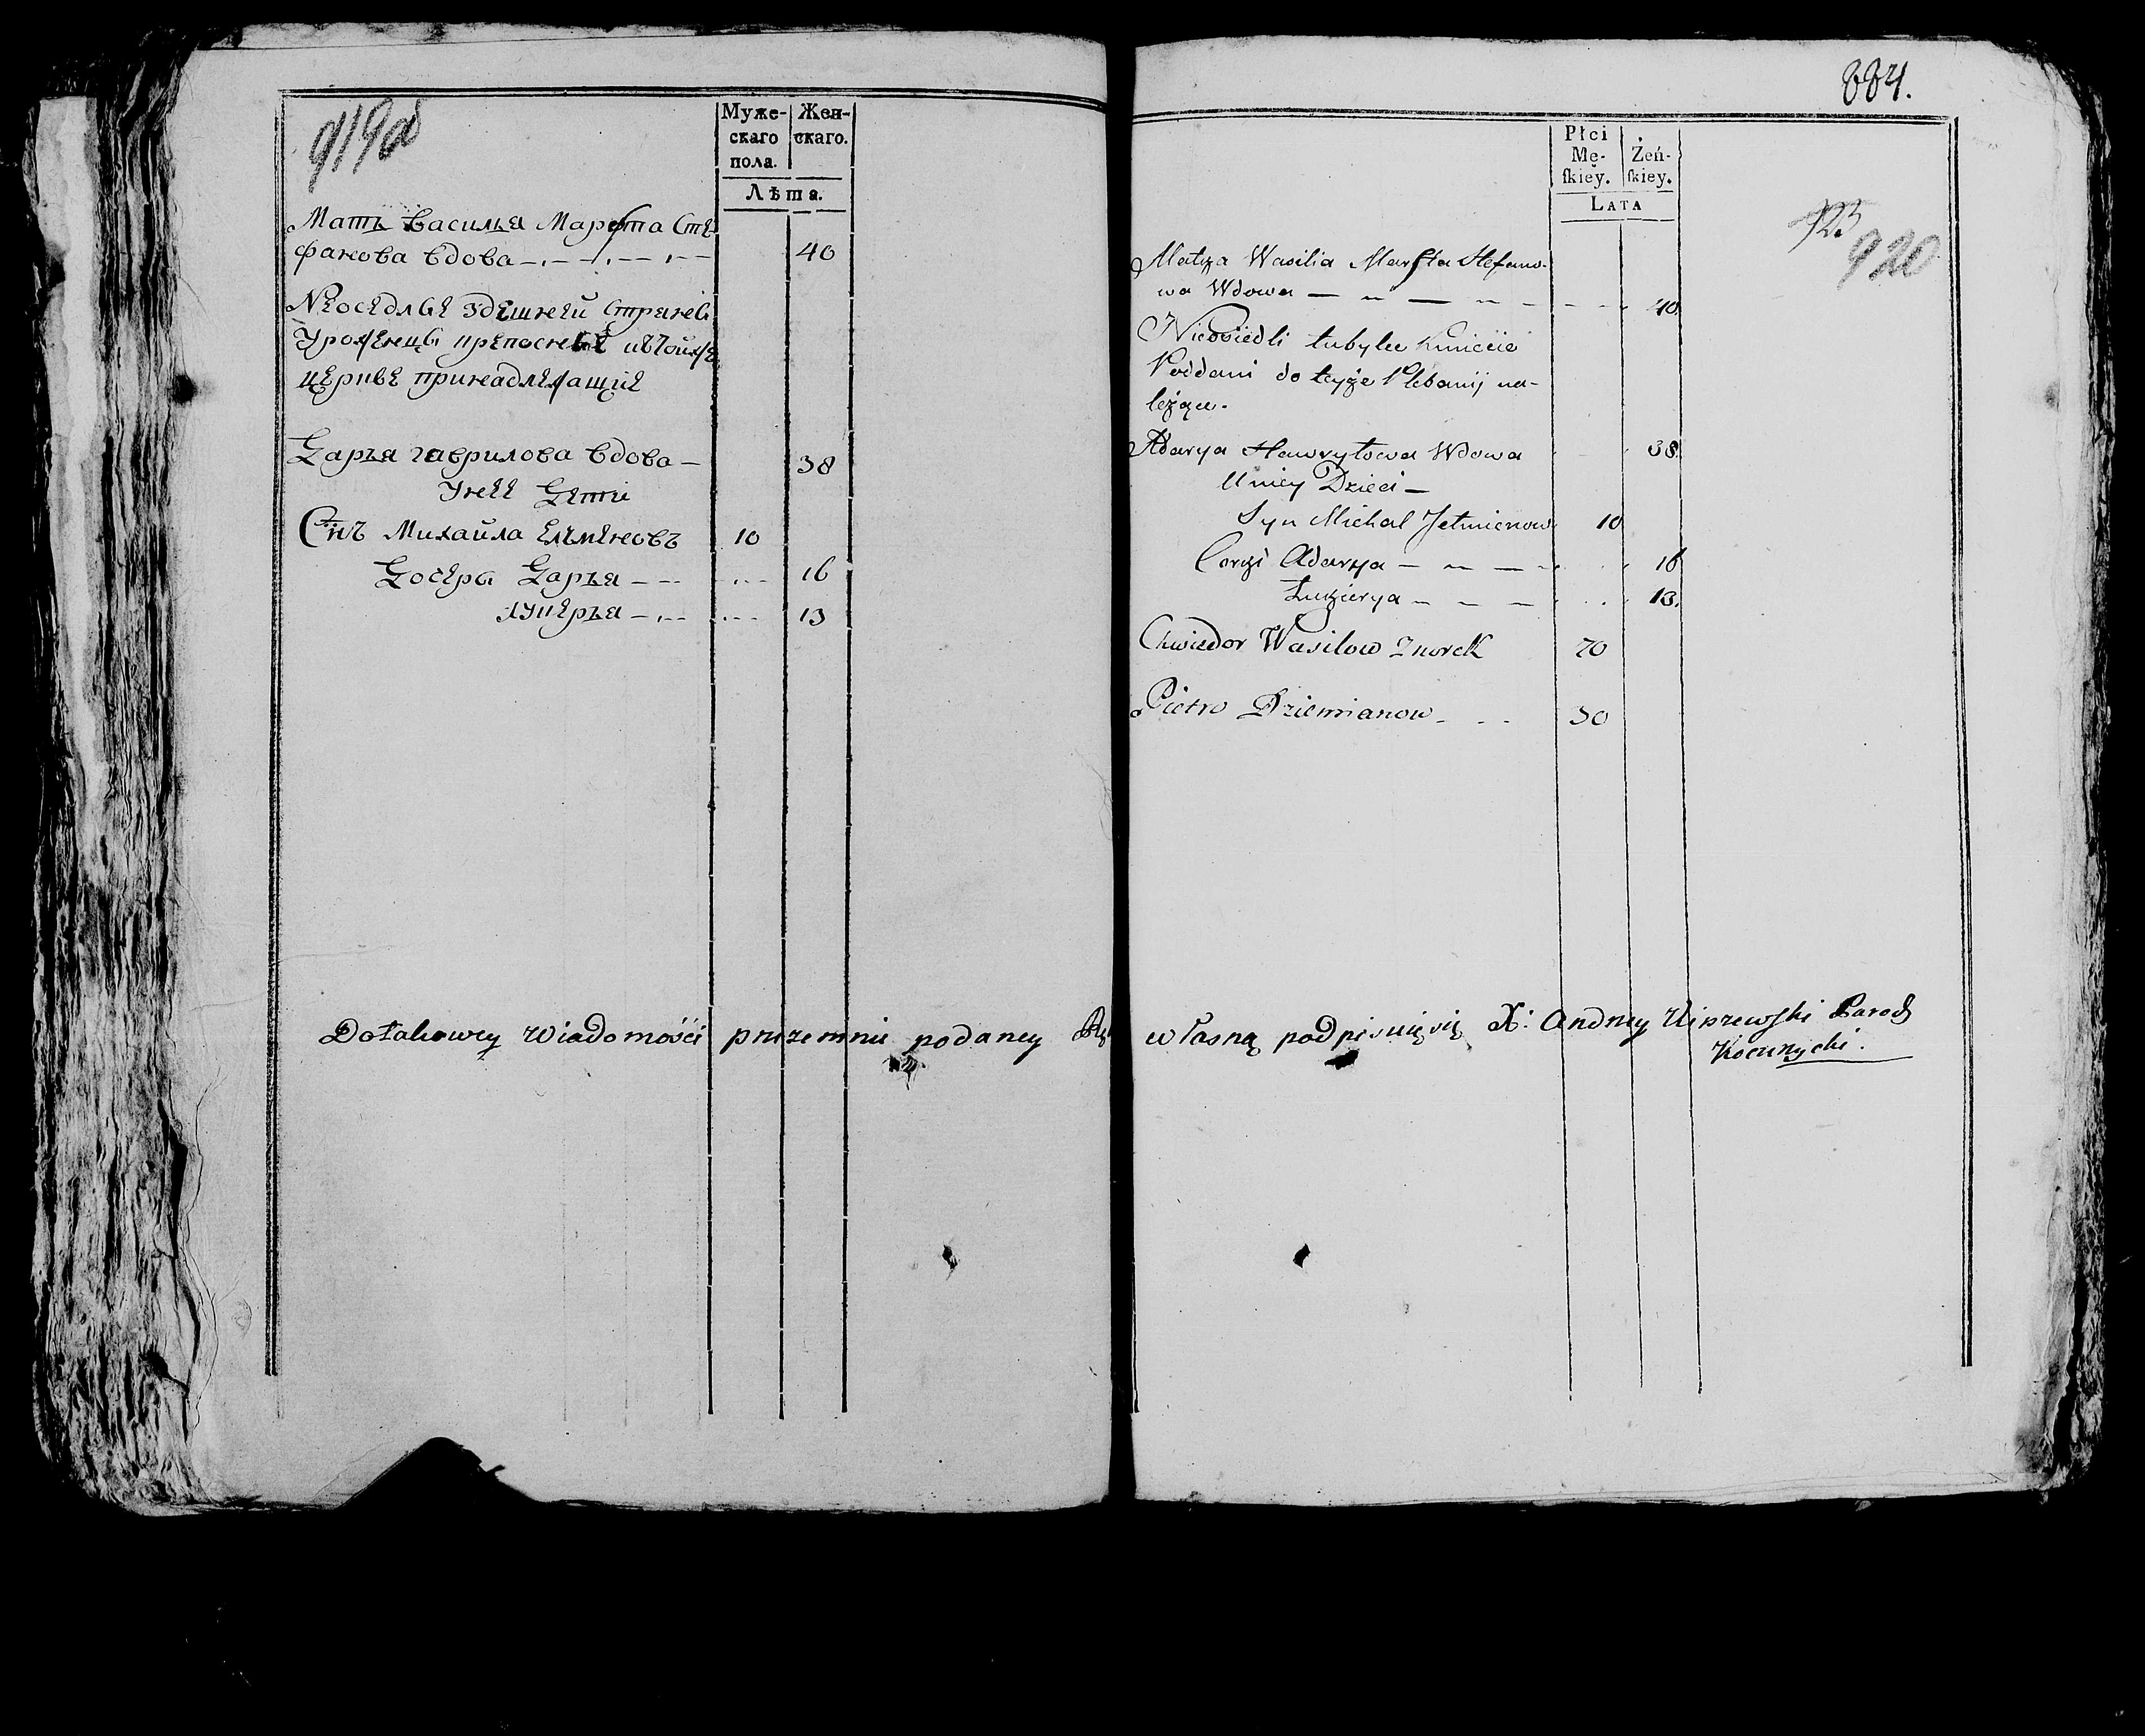 919об
Муже-
скаго
пола.
Жен-
скаго.
Лѣта.
Мать Василья Марѳта Сте
фанова вдова 40
Неоседлые здешней страны
Уроженцы
церкве принадлежащие
Дарья гаврилова вдова 38
Унее Дети
Сынъ Михайла Елъменовъ 10
Дочеры Дарья 16
Луцерья 13
884.
Płci
Mę-
ſkiey.
Żeń-
ſkiey.
LATA
923
920
Matka Wasilia Marfta Stefano-
wa Wdowa 40
Nieosiedli tubylce Kmiecie
Poddani do teyże Plebanij na-
leżące.
Adarya Hawryłowa Wdowa 38
Uniey Dzieci
Syn Michał Jelmienow 10
Corki Adarya 16
Łukierya 13.
Chwiedor Wasilow Znorek 70
Pietro Dziemianow 30
Dotakowey Wiadomości przezemnie podaney Ręką własną podpisuię się X: Andrzey Paroch